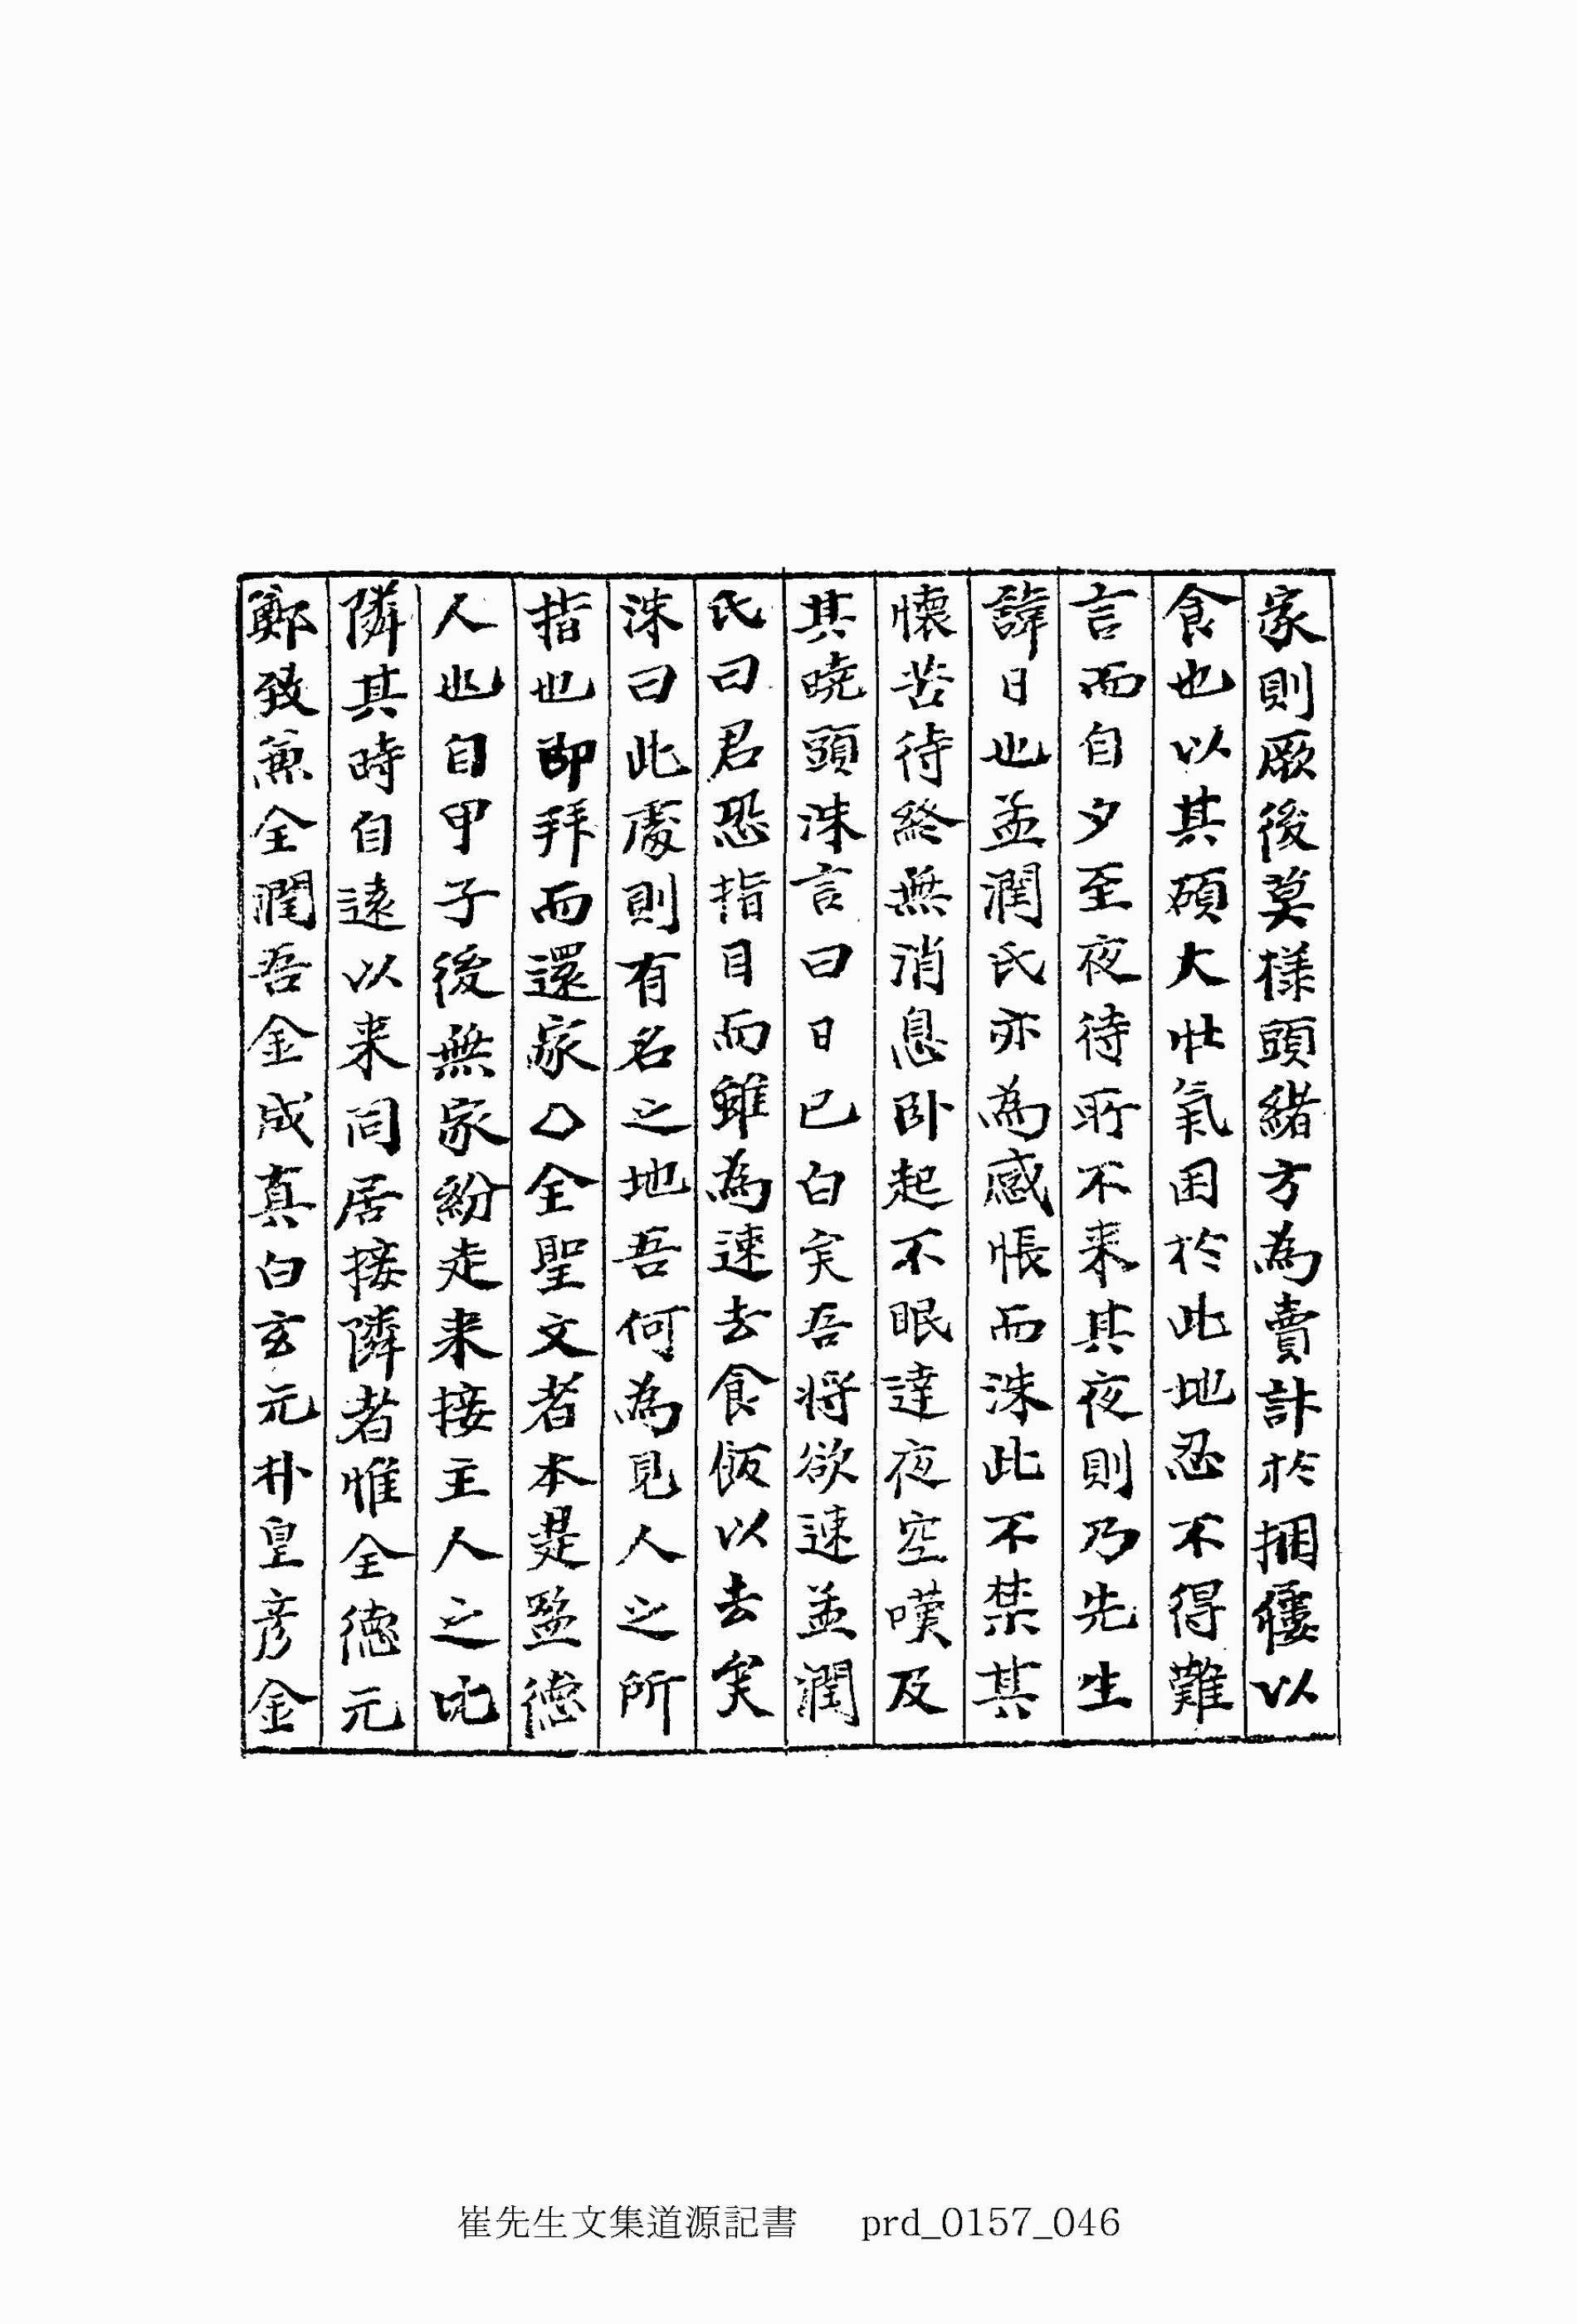 家則厥後莫樣頭緖方為賣計於捆僂以
食也以其碩大壯氣困於此地忍不得難
言而自夕至夜待所不来其夜則乃先生
諱日也孟潤氏亦為感悵而洙此不禁其
懷苦待終無消息卧起不眠達夜空嘆及
其曉頭洙言曰日已白矣吾将欲速孟潤
氏曰君恐指目而雖為速去食飯以去矣
洙曰此處則有名之地吾何為見人之所
指也即拜而還家△全聖文者本是盈德
人也自甲子後無家紛走来接主人之比
隣其時自遠以来同居接隣者惟全德元
鄭致兼全潤吾金成真白玄元朴皇彦金
崔先生文集道源記書 prd_0157_046